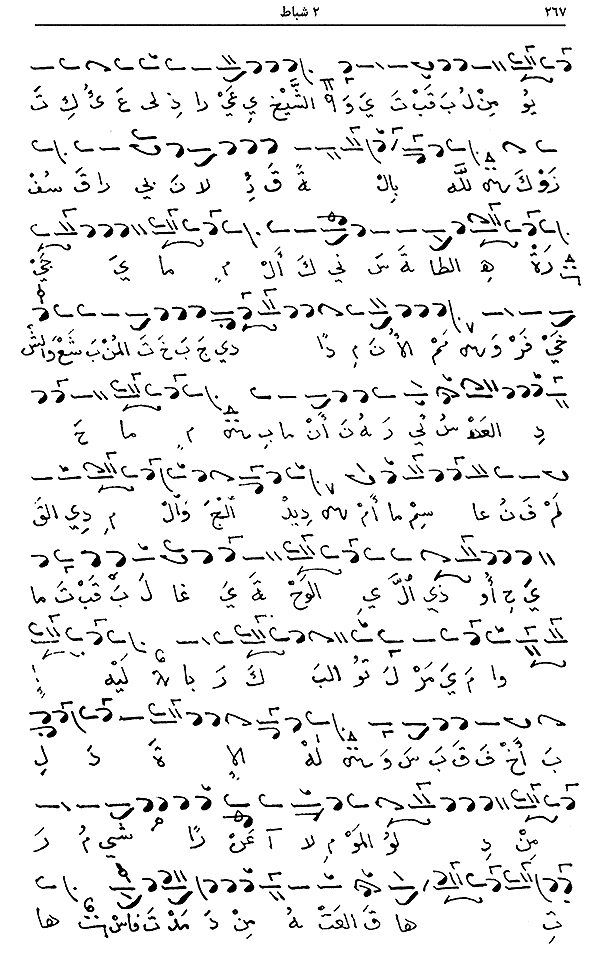 ٢٦٧ ٢ شباط
يُو مِنْ لُ بَ قَبْ تَ يَ وَ الشَّيْخِ يِ عَيْ را ذِ لى عَ ئُ كِ تَ
زَوْ كَ للَّه بِالْ ةً قَ دِ لا نَ بي را قَ سُفْ
رَةْ هِ الطا ةَ سَ ني كَ أَلْ مِ ما يَ
خَيْ فَرْ وَ نَمْ الأُ نَ مِ دًا دي جَ بَ خَ تَ المُنْ بَ شَعْ وَالشْ
دِ العَدْ سُ نُي رَ هُ تَ أَنْ ما بِ مِ ما حَ
لَمْ فَ نُ عا سِمْ ما أَمْ دِيدْ الْجَ وَالْ مِ دِي القَ
يَ حِ أُو ذي الَّ يِ الوَحْ ةَ يَ غا لَ بَّ قَبْ تَ ما
وا مَ يَ مَرْ لَ تُو البَ كَ رَ با لَيْهْ
بَ أَخْ فَ قَ بَ سَ وَ لهْ الإِ ةَ دَ لِ
مِنْ دِ لَوْ المَوْ مِ لا آ عَنْ رًا شي مُ رَ
تِ ها قَ العَتْ هُ مِنْ دَ مَدْ تَ فاسْ ها